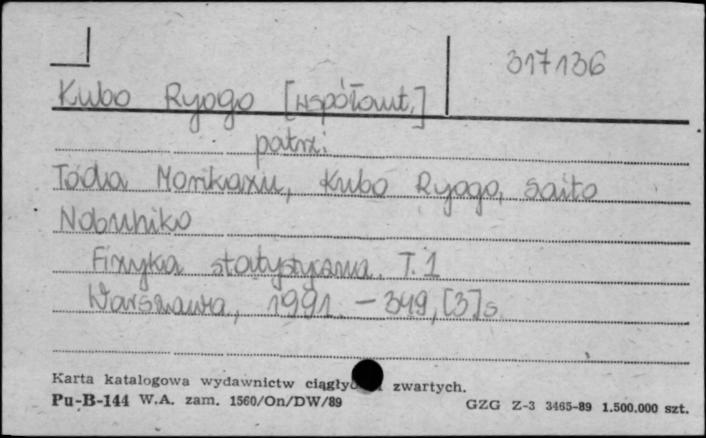 317136
Kubo Ryogo [współaut.]
patrz:
Toda Morikazu, Kubo Ryogo, Saito
Nobuhiko
Fizyka statystyczna. T. 1
Warszawa, 1991. - 349, [3] s.
Karta katalogowa wydawnictw zwartych.
Pu-B-144 W.A. zam. 1560/On/DW/89
GZG Z-3 3465-89 1.500.000 szt.